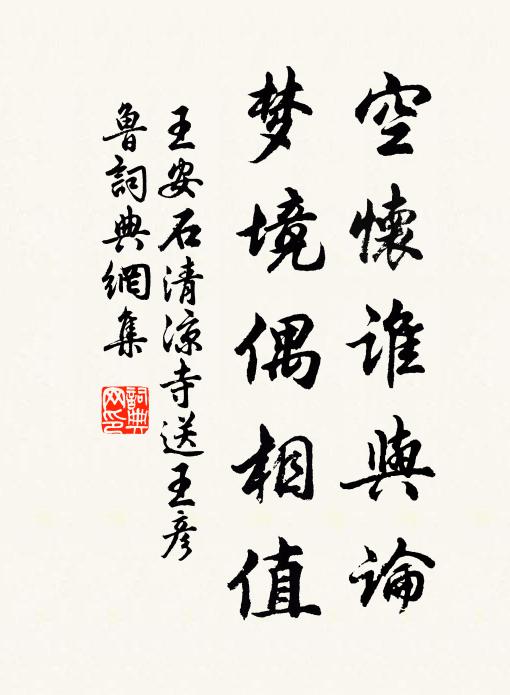 空懷誰與論
梦境偶相值
王安石清凉寺送王彦
魯詞典網集
詞典
网印